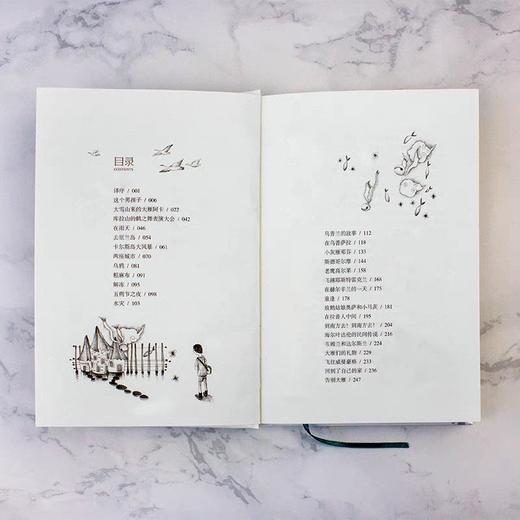 目录
CONTENTS
译序 / 001
这个男孩子 / 006
大雪山来的大雁阿卡 / 022
库拉山的鹤之舞表演大会 / 042
在雨天 / 046
去厄兰岛 / 054
卡尔斯岛大风暴 / 061
两座城市 / 070
乌鸦 / 081
粗麻布 / 091
解冻 / 095
五朔节之夜 / 098
水灾 / 103
乌普兰的故事 / 112
在乌普萨拉 / 118
小灰雁邓芬 / 133
斯德哥尔摩 / 144
老鹰高尔果 / 158
飞越耶斯特雷克兰 / 168
在赫尔辛兰的一天 / 175
重逢 / 178
放鹅姑娘奥萨和小马茨 / 181
在拉普人中间 / 195
到南方去!到南方去! / 204
海尔叶达伦的民间传说 / 216
韦姆兰和达尔斯兰 / 224
大雁们的礼物 / 229
飞往威曼豪格 / 233
回到了自己的家 / 236
告别大雁 / 247